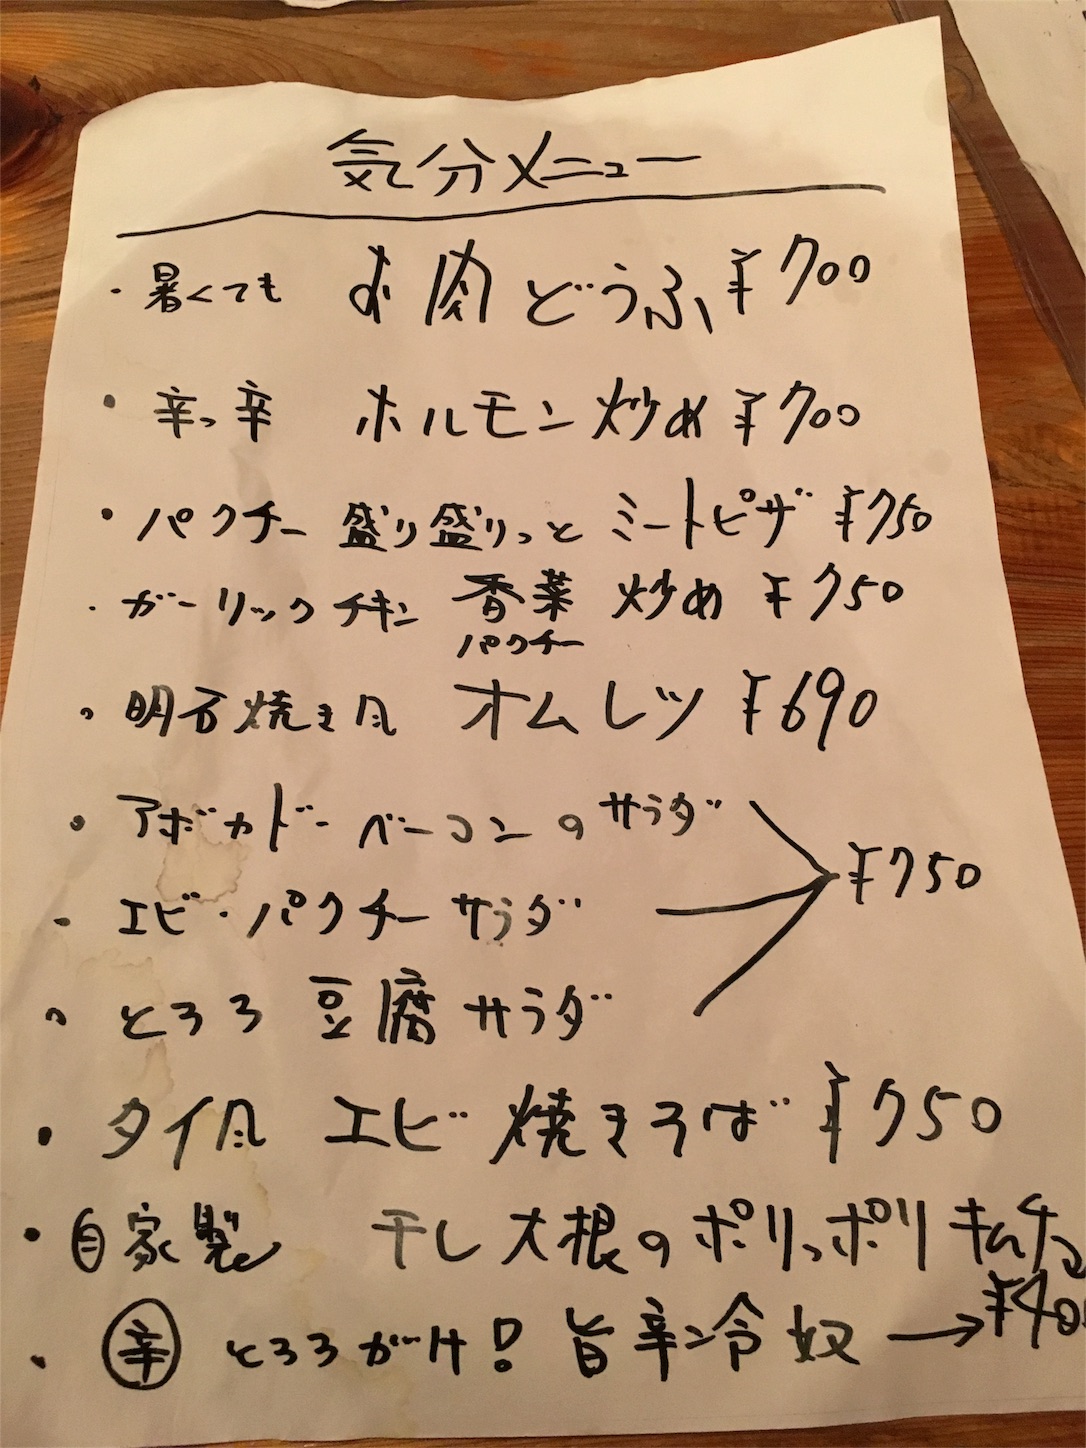 気分メニュー
・暑くても お肉どうふ ¥700
・辛っ辛 ホルモン炒め ¥700
・パクチー盛り盛りっと ミートピザ ¥750
・ガーリックチキン 香菜炒め ¥750
パクチー
・明石焼き風 オムレツ ¥690
・アボカドーベーコンのサラダ
¥750
・エビ・パクチーサラダ
・とろろ豆腐サラダ
・タイ風 エビ焼きそば ¥750
・自家製 干し大根のポリっポリキムチ
・辛 とろろがけ! 旨辛冷奴 → ¥400